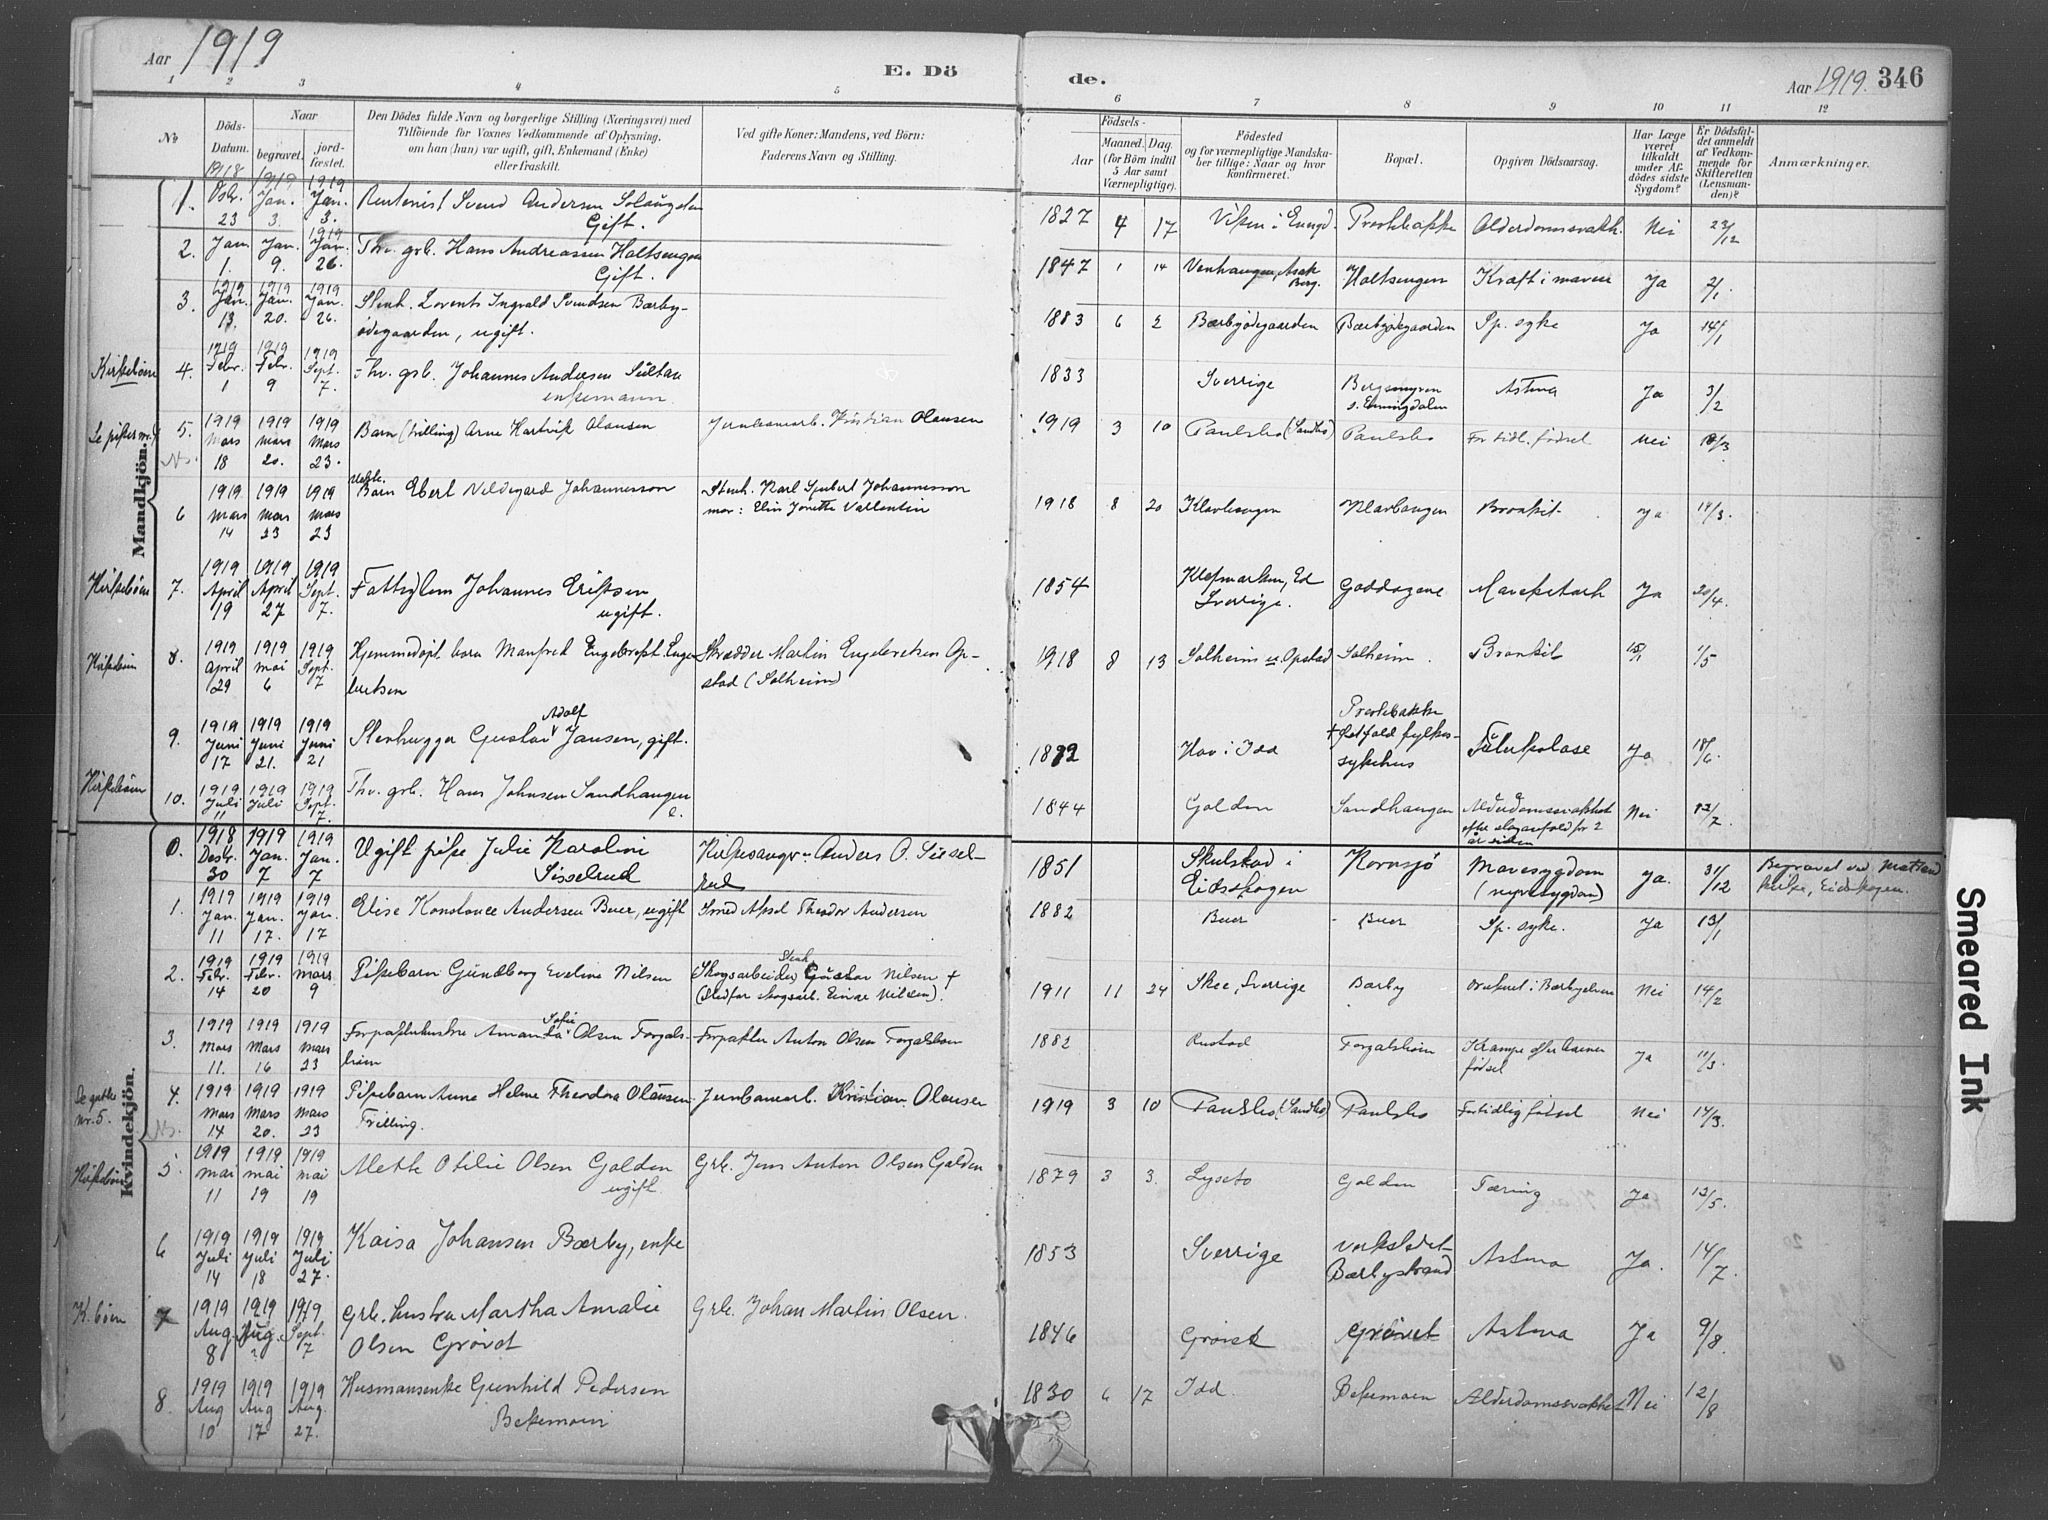 Aar 1919
E. Dö
de.
Aar 1919. 346
1 2 3 4 5
6 7 8 9 10 11 12
No
Döds-
Datum.
Naar
begravet.
jord-
fæstet.
Den Dödes fulde Navn og borgerlige Stilling (Næringsvei) med
Tilföiende for Voxnes Vedkommende af Oplysning,
om han (hun) var ugift, gift, Enkemand (Enke)
eller fraskilt.
Ved gifte Koner: Mandens, ved Börn:
Faderens Navn og Stilling.
Födsels-
Aar
Maaned. Dag.
(for Börn indtil
5 Aar samt
Værnepligtige).
Födested
og for værnepligtige Mandska-
ber tillige: Naar og hvor
konfirmeret.
Bopæl.
Opgiven Dödsaarsag.
Har Læge
været
tilkaldt
under Af-
dödes sidste
Sygdom?
Er Dödsfal-
det anmeldt
af Vedkom-
mende for
Skifteretten
(Lensman-
den)?
Anmærkninger.
Mandkjön.
1. 1918 23 1919 Jan. 3. 1919 Jan. 3. Rentenist Svend Andersen
Gift.
1827 4 17 Alderdomssvakh. Nei 23/12
2. 1919 Jan. 1. Jan. 9. 1919 Jan. 26. Thv. grb. Hans Andreassen Holtsengen
Gift.
1847 1 14 Venhaugen, Asak Berg. Holtsengen Kræft i maven Ja 2/1
3. 1919 Jan. 13. 1919 Jan. 20. 1919 Jan. 26. Stenh. Lorents Ingvald Svendsen Bærby-
ødegaarden, ugift.
1883 6 2 Bærbyødegaarden Bærbyødegaarden Sp. syke Ja 14/1
4. 1919 Febr. 1 1919 Febr. 9 1919 Sept. 7. Thv. grb. Johannes Andersen Sultan
enkemann.
1833 Sverrige Astma Ja 3/2
5. 1919 Mars 18 1919 Mars 20. 1919 Mars 23. Barn (trilling) Arne Hartvik Olausen Jernbanearb. Kristian Olausen
1919 3 10 Paulsbo (Sandbo) Paulsbo For tidl. fødsel Nei
6 1919 Mars 14 1919 Mars 23 1919 Mars 23 Barn Ebert Johannesson Stenh. Karl Johannesson
mor: Elin Jonette Vallentin
1918 8 20 Bronkit. Ja
Kirkebøin 7. 1919 April 19 1919 April 27 1919 Sept. 7. Fattiglem Johannes Eriksen
ugift.
1854 Ed
Sverrige. Ja 20/4
8. 1919 April 29 1919 Mai 6 1919 Sept. 7 Hjemmedøpt barn Manfred Engebrekt Enge-
bretsen Skrædder Martin Engebretsen Op-
stad (Solheim)
1918 8 13 Solheim u. Opstad Solheim. Bronkit 1/5
9. 1919 Juni 17 1919 Juni 21. 1919 Juni 21 Stenhugger Gustav Adolf Jansen, gift.
Hov i Idd Prestebakke
+ Østfold fylkes-
sykehus Tuberkolose Ja 18/6
Kirkebøin 10. 1919 Juli 11 1919 Juli 1919 Sept. 7. Thv. grb. Hans Johnsen Sandhaugen
e.
1844 Golden Sandhaugen Alderdomssvakhet
efter slaganfald for 2
år siden Nei 12/7
Kvindekjön.
0. 1918 Desbr. 30 1919 Jan. 7 1919 Jan. 7 Ugift pike Julie Karoline
Sisselrud Kirkesanger Anders O. Sissel-
rud
1851 Skulstad i
Eidskogen Kornsjø Mavesygdom
(nyresygdom) Ja. 31/12 Begravet ved
kirke, Eidskogen.
1. 1919 Jan. 11 1919 Jan. 17. 1919 Jan. 17 Elise Konstance Andersen Buer, ugift Smed Aksel Theodor Andersen
1882 Buer Buer Sp. syke. Ja 13/1
2. 1919 Febr. 14 1919 Febr. 20 1919 Mars 9 Pikebarn Gundborg Eveline Nilsen Skogsarbeider Gustav Nilsen +
(Stedfar skogsarb. Einar Nilsen).
1911 11 24 Skee, Sverrige Bærby Druknet i Bærbyelven Nei 14/2
3. 1919 Mars 11. 1919 Mars 16 1919 Mars 23 Forpakterhustru Amanda Sofie Olsen Torgals-
bøin Forpakter Anton Olsen Torgalsbøin
1882 Rustad Torgalsbøin Krampe efter
fødsel Ja 11/3.
4. 1919 Mars 14 1919 Mars 20. 1919 Mars 23 Pikebarn Anna Helene Theodora Olausen
Trilling. Jernbanearb. Kristian Olausen
1919 3 10 Paulsbo (Sandbo) Paulsbo For tidlig fødsel Nei 14/3.
5 1919 Mai 11 1919 Mai 19 1919 Mai 19 Mette Otilie Olsen Golden
ugift Grb. Jens Anton Olsen Golden
1879 3 3. Lyseto Golden Tæring Ja 12/5.
6 1919 Juli 14 1919 Juli 18 1919 Juli 27. Kaisa Johansen Bærby, enke
1853 Sverrige Verkstedet
Bærbystrand Astma Ja. 14/7
K. bøin 7 1919 Aug. 8 1919 Aug. 1919 Sept. 7 Grb. hustru Martha Amalie
Olsen Grøvet Grb. Johan Martin Olsen.
1846 Grøvet Grøvet Astma Ja 9/8.
8. 1919 Aug 10 1919 Aug 17 1919 Aug. 27. Husmansenke Gunhild Pedersen
Bekemoin
1830 6 17 Idd. Bekemoen Alderdomssvakhet Nei 12/8
Smeared Ink